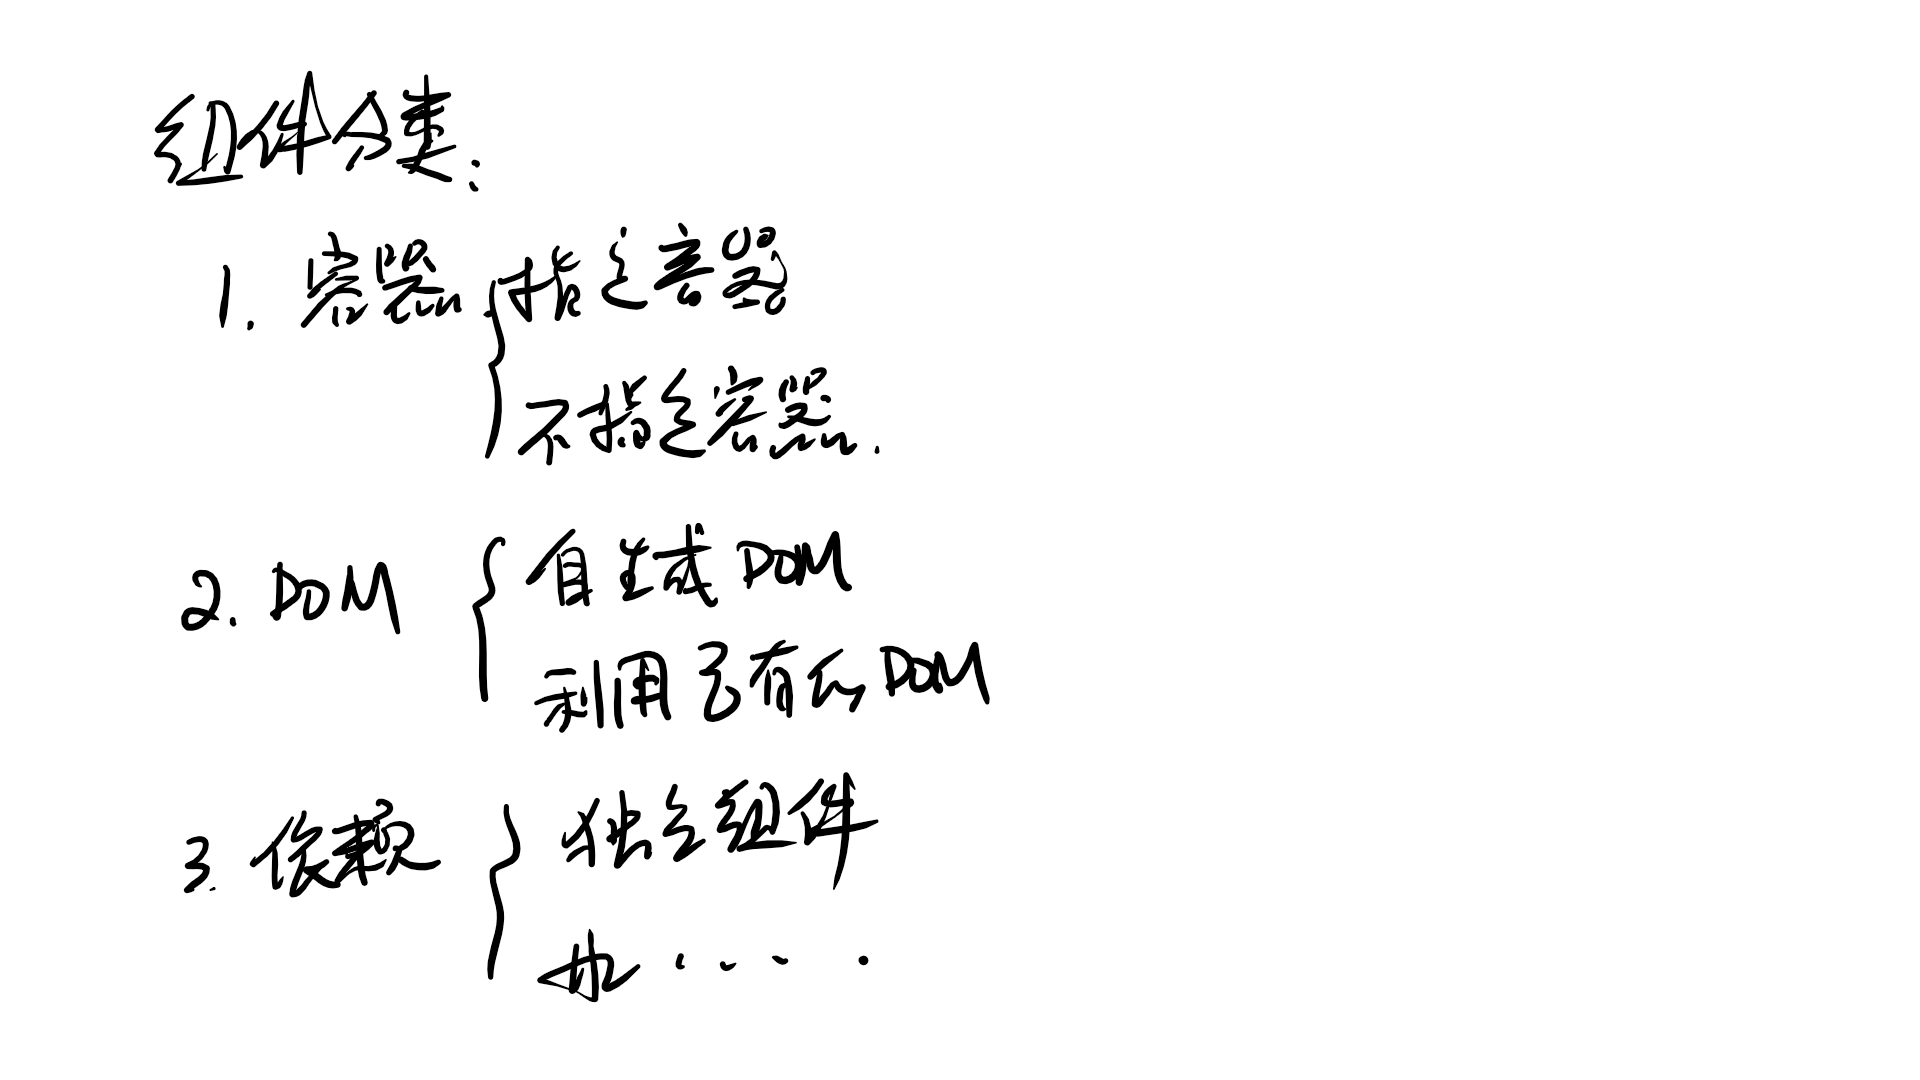 组件分类:
1. 容器 { 指定容器
不指定容器.
2. DOM { 自生成DOM
利用已有的DOM
3. 依赖 { 独立组件
非 ....